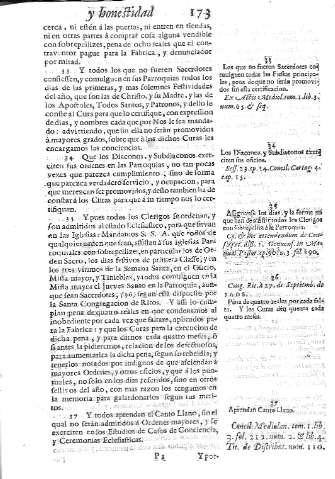 y honestidad 173
cerca, ni estén á las puertas, ni entren en tiendas,
ni en otras partes á comprar cosa alguna vendible
con sobrepellizes, pena de ocho reales que el con-
traventor pague para la Fabrica, y denunciador
por mitad.
33 Y todos los que no fueren Sacerdotes
confiessen, y comulguen en sus Parroquias todos los
dias de las primeras, y mas solemnes Festividades
del año, que son las de Christo, y su Madre, y las de
los Apostoles, Todos Santos, y Patronos, y dello le
conste al Cura para que lo certifique, con expression
de dias, y nombres cada que por Nos le sea manda-
do: advirtiendo, que sin ella no serán promovidos
à mayores grados, sobre que à las dichos Curas les
encargamos las conciencias.
34 Que los Diaconos, y Subdiaconos exer-
citen sus oficios en las Parroquias, no tan pocas
vezes que parezca cumplimiento; sino de forma
que parezca verdadero servicio, y ocupacion, para
que merezcan ser promovidos, y dello tambien ha de
constar à los Curas para que à su tiempo nos lo cer-
tifiquen.
35 Y pues todos los Clerigos se ordenan, y
son admitidos al estado Eclesiastico, para que sirvan
en las Iglesias: Mandamos S. S. A. que todos de
qualquier orden que sean, assistan à sus Iglesias Par-
roquiales con sobrepellizes, en particular los de Or-
den Sacro, los dias festivos de primera Classe, y en
los tres ultimos de la Semana Santa, en el Oficio,
Missa mayor, y Tinieblas, y todos comulguen en la
Missa mayor el Jueves Santo en la Parroquia, aun-
que sean Sacerdotes, (36) segun está dispuesto por
la Santa Congregacion de Ritos. Y assi lo cum-
plan pena de quatro reales en que condenamos al
inobediente por cada vez que faltare, aplicados pa-
ra la Fabrica: y que los Curas para la execucion de
dicha pena, y para darnos cada quatro meses, ò
quantas la pidieremos, relacion de los defectuosos,
para aumentarles la dicha pena, segun su rebeldia; y
tenerlos notados por indignos de que asciendan à
mayores Ordenes, y otros oficios, y que à los pun-
tuales, no solo en los dias referidos, sino en otros
festivos del año, con mas razon los tengamos en
la memoria para galardonarlos segun sus meri-
tos.
37 Y todos aprendan el Canto Llano, sin el
qual no serán admitidos à Ordenes mayores, y se
exerciten en los Estudios de Casos de Conciencia,
y Ceremonias Eclesiasticas.
P2 Y por-
33
Los que no fueren Sacerdotes co-
mulguen todas las Fiestas princi-
pales, pena de que no se les dará
certificacion.
34
Los Diaconos, y Subdiaconos exerci-
ten sus oficios.
35
36
Para de quatro reales por cada fal-
ta. Y los Curas den cuenta cada
quatro meses.
37
Aprendan Canto Llano.
Concil. Mediolan. tom. 1. lib.